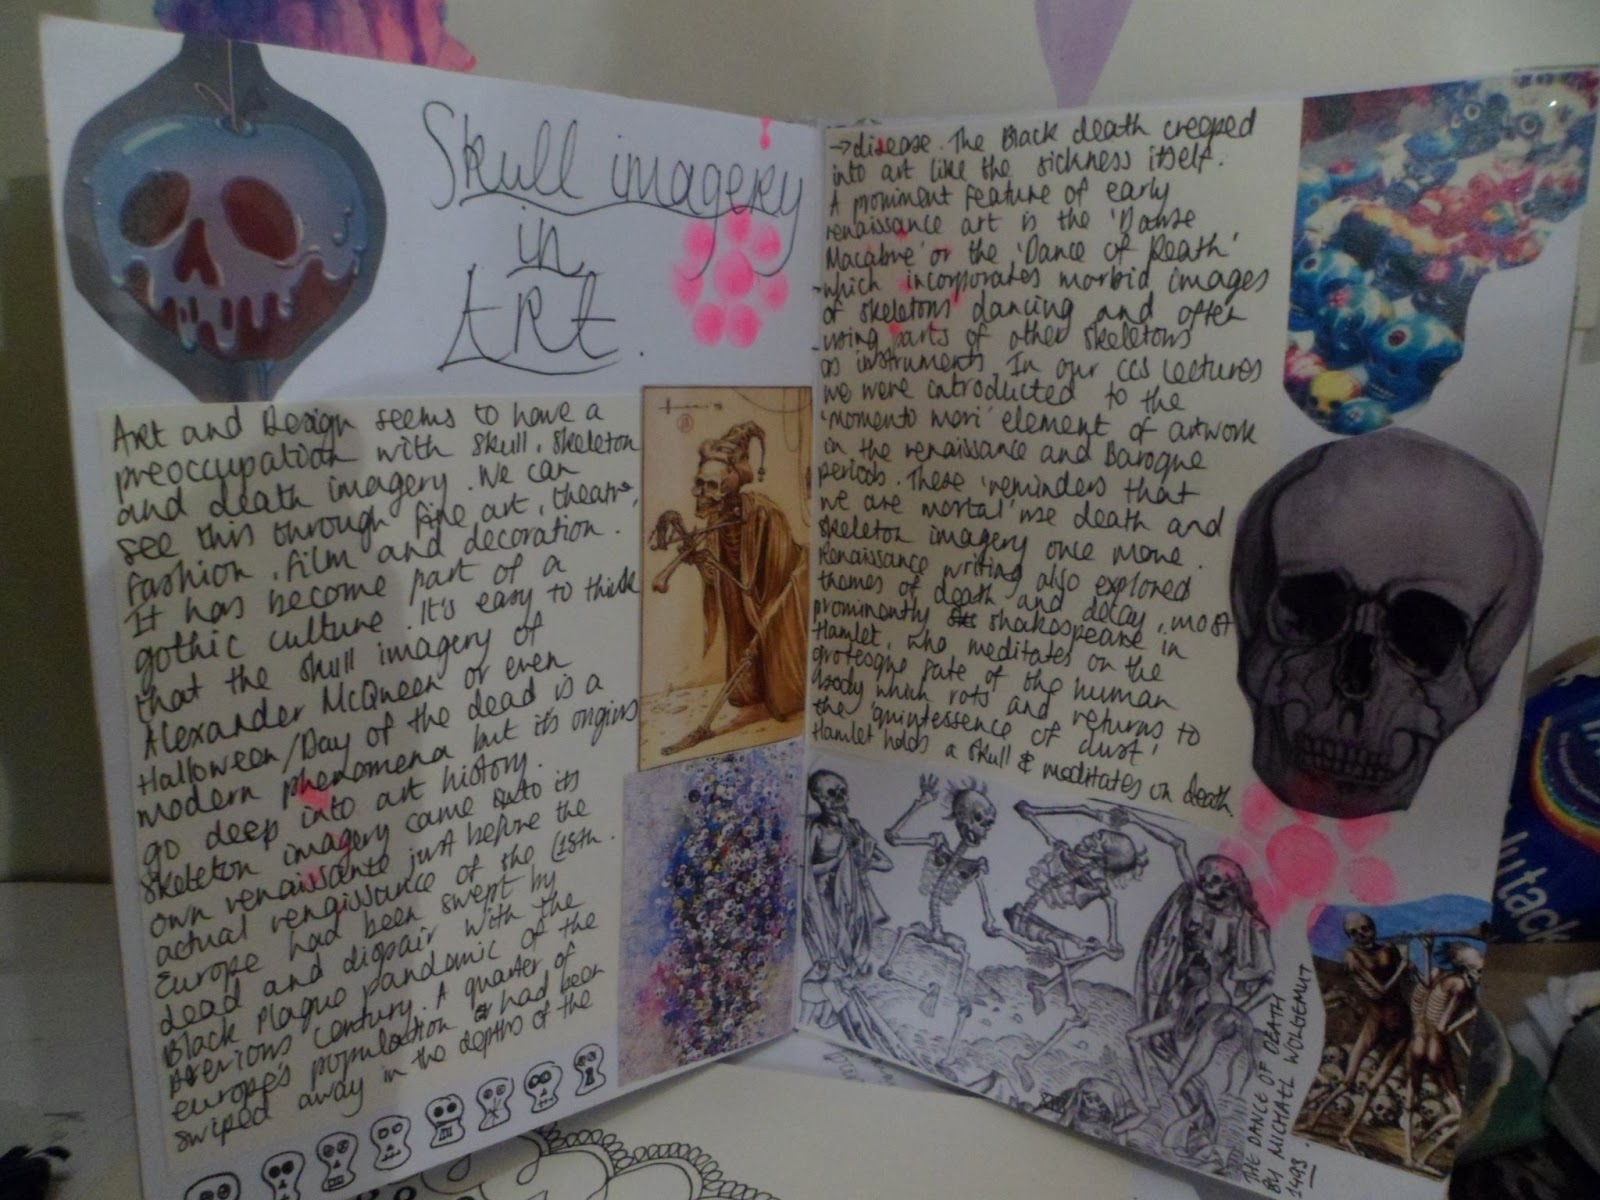 Skull imagery
in
ART.
Art and Design seems to have a
preoccupation with skull, skeleton
and death imagery. We can
see this through fine art, theatre,
fashion, film and decoration.
It has become part of a
gothic culture. It's easy to think
that the skull imagery of
Alexander McQueen or even
Halloween/Day of the dead is a
modern phenomena but it's origins
go deep into art history.
Skeleton imagery came into its
own renaissante just before the
actual rengissance of the (15th.
Europe had been swept by
dead and dispair with the
Black Plague pandemic of the
previous century. A quarter of
europe's population had been
swiped away in the depths of the
→ disease. The Black death creeped
into art like the sickness itself.
A prominent feature of early
renaissance art is the 'Danse
Macabre' or the 'Dance of Death'
which incorporates morbid images
of skeletons dancing and often
using parts of other skeletons
as instruments. In our CCS Lectures
we were introducted to the
'momento mori' element of artwork
in the renaissance and Baroque
periods. These 'reminders that
we are mortal' use death and
skeleton imagery once more.
Renaissance writing also explored
themes of death and decay, most
prominently shakespeare in
Hamlet, who meditates on the
grotesque fate of the human
body which rots and returns to
the 'quintessence of dust'
Hamlet holds a skull & meditates on death
THE DANCE OF DEATH
BY MICHAEL WOLGEMUT
1493.
lutack